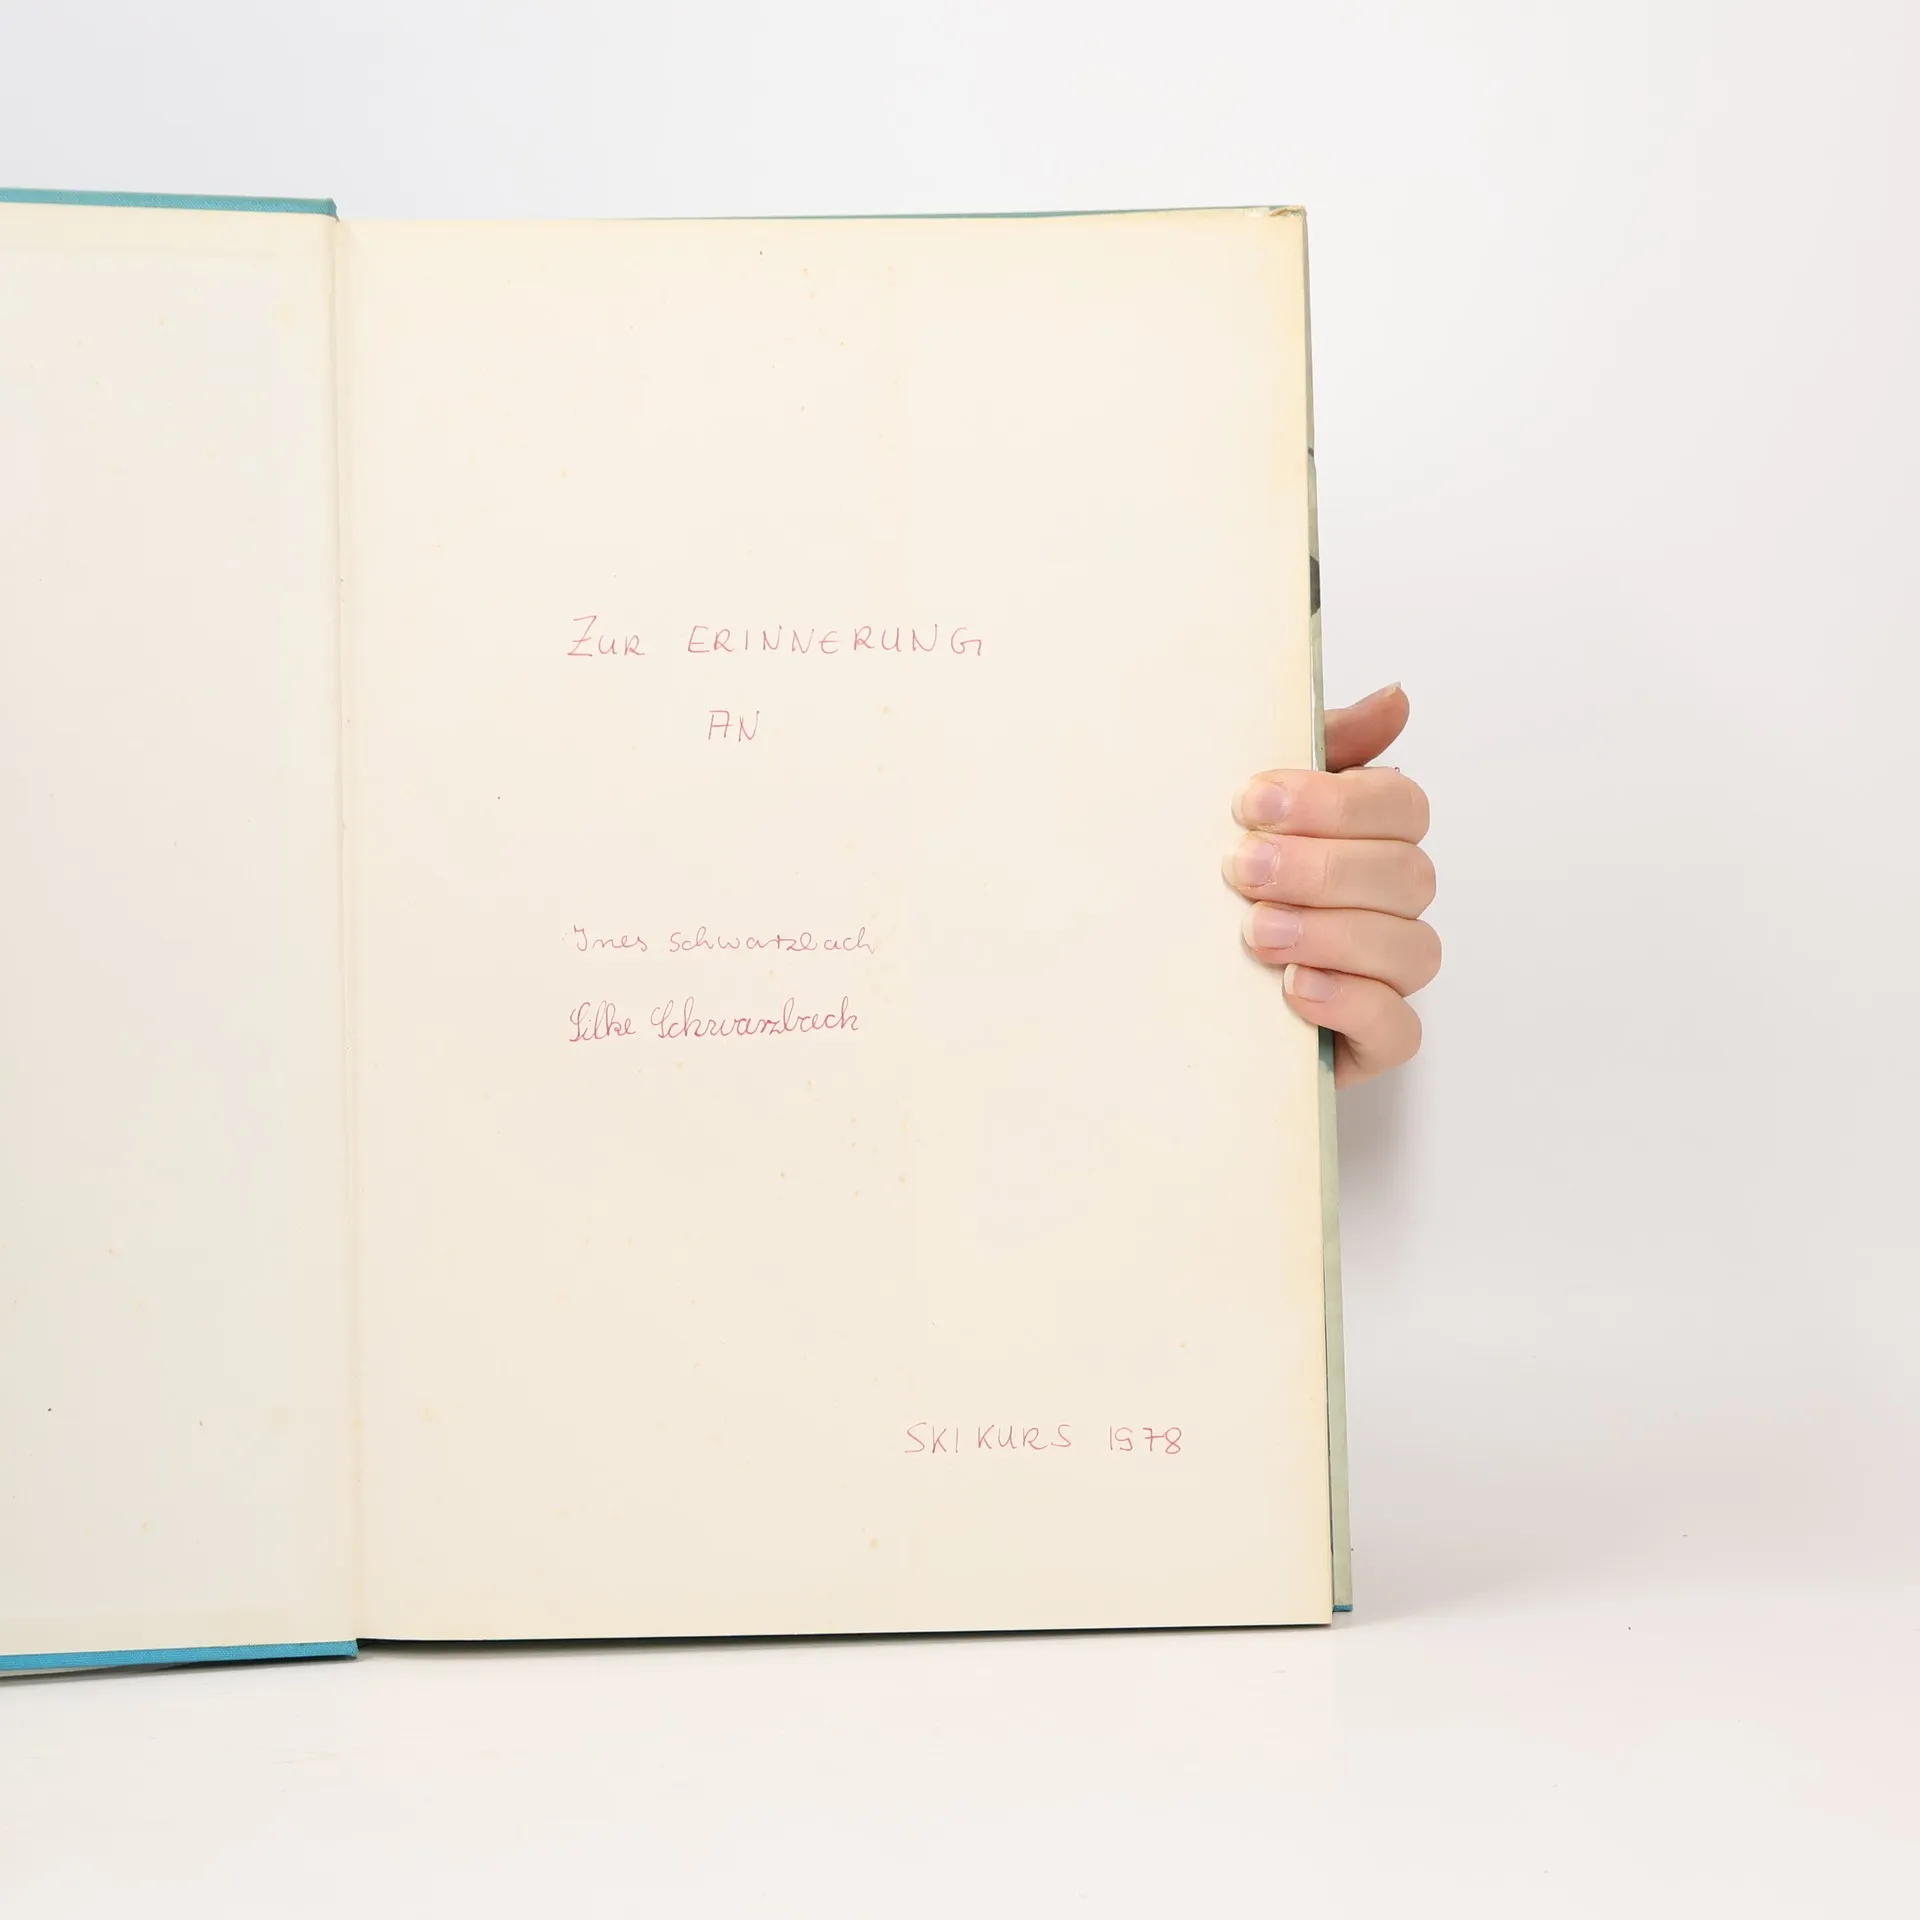 ZUR ERINNERUNG
AN
Ines Schwarzbach
Silke Schwarzbach
SKIKURS 1978